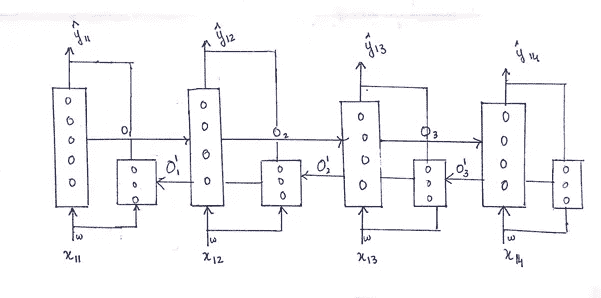 ŷ11 ŷ12 ŷ13 ŷ14
O1 O2 O3
O1' O2' O3'
w w w w
x11 x12 x13 x14